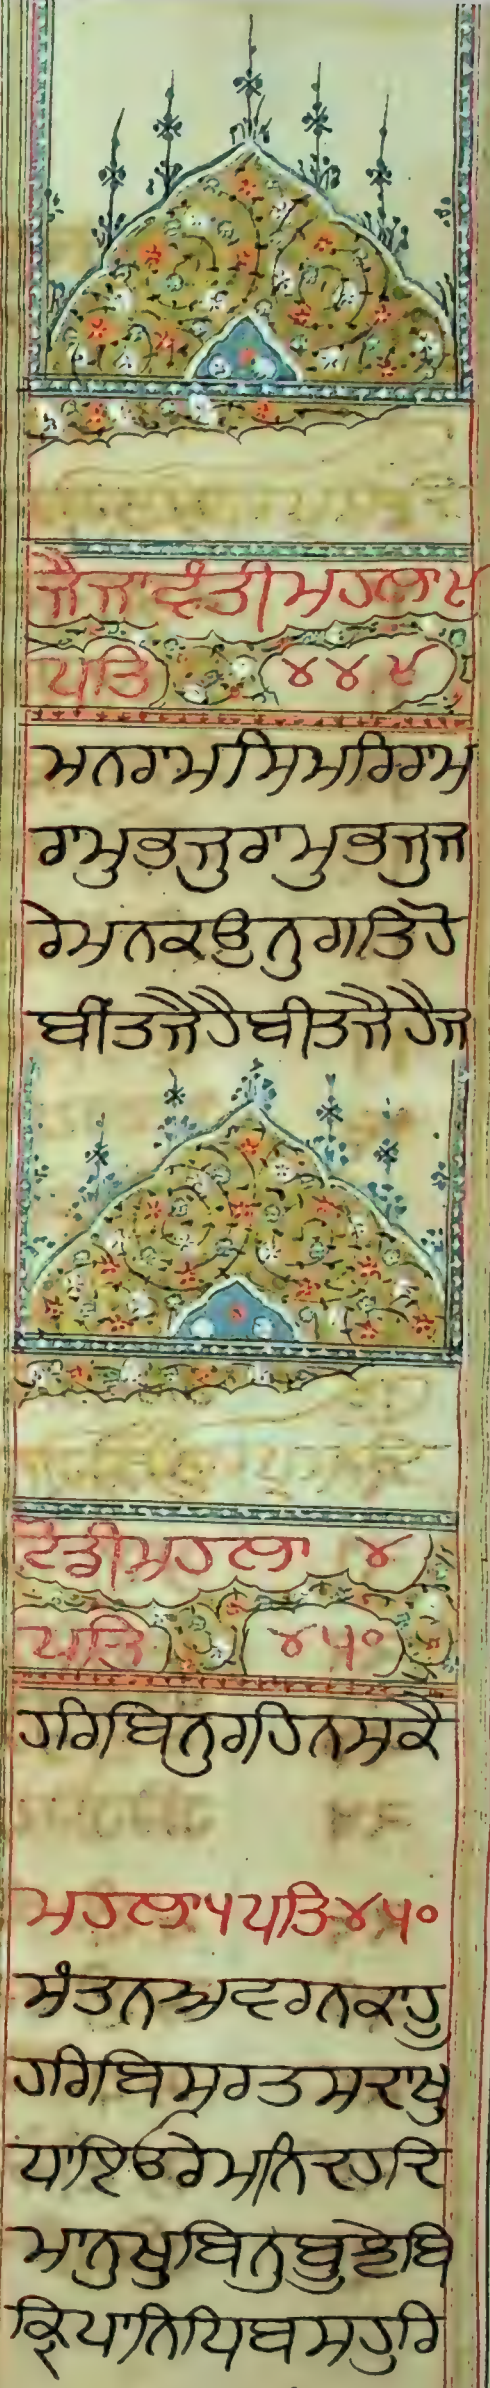 ਜੈਜਾਵੰਤੀ ਮਹਲਾ ੯
ਪਤਿ ੪੪੯
ਮਨਰਾਮਸਿਮਰਿਰਾਮ
ਰਾਮੁਭਜੁਰਾਮੁਭਜੁਜ
ਰੇਮਨਕਉਨੁਗਤਿਹੋ
ਬੀਤਜੈਹੈਬੀਤਜੈਹੈਜ
ਟੋਡੀਮਹਲਾ ੪
ਪਤਿ ੪੫੦
ਹਰਿਬਿਨੁਰਹਿਨਸਕੈ
ਮਹਲਾ੫ਪਤਿ੪੫੦
ਸੰਤਨਅਵਰਨਕਾਹੂ
ਹਰਿਬਿਸਰਤਸਦਾਖੁ
ਧਾਇਓਰੇਮਨਿਦਹਦਿ
ਮਾਨੁਖੁਬਿਨੁਬੁਝੇਬਿ
ਕ੍ਰਿਪਾਨਿਧਿਬਸਹੁਰਿ